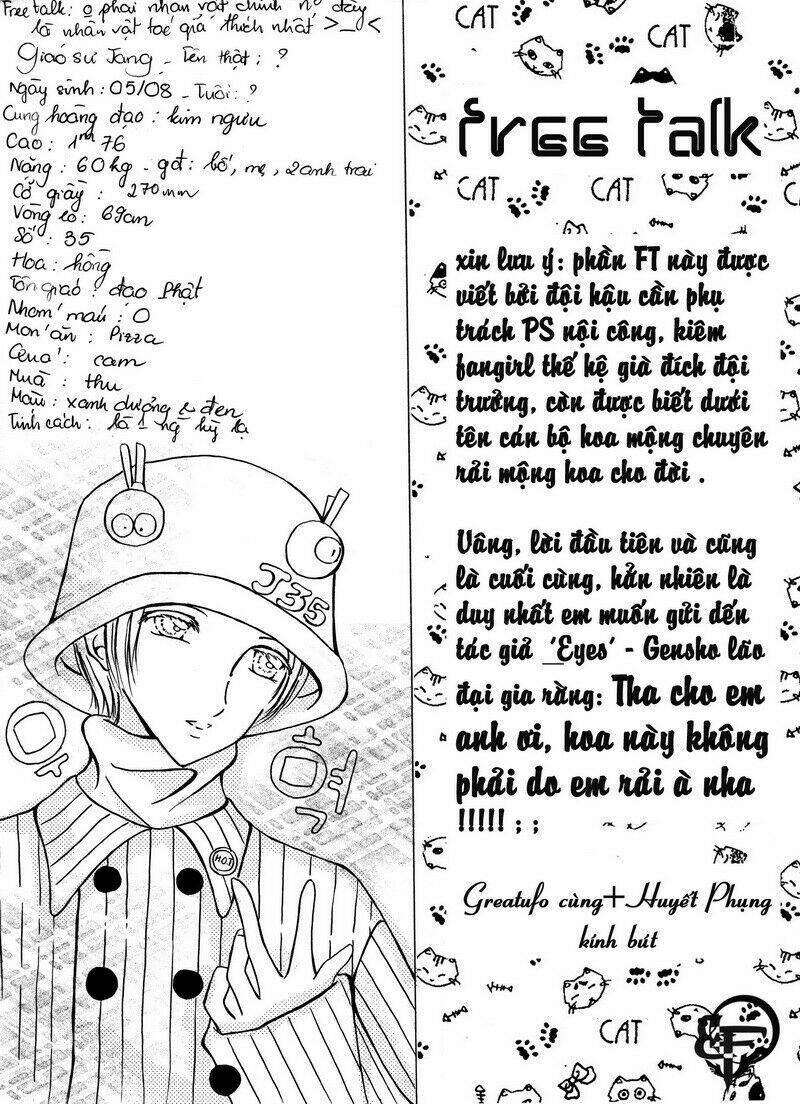 Free talk: o phải nhân vật chính nº đây
là nhân vật tác giả thích nhất >_<
Giáo sư Jang - Tên thật: ?
Ngày sinh: 05/08 - Tuổi: ?
Cung hoàng đạo: kim ngưu
Cao: 1m76
Nặng: 60kg - gđ: bố, mẹ, 2 anh trai
Cỡ giầy: 270mm
Vòng eo: 69cm
Số: 35
Hoa: hồng
Tôn giáo: đạo Phật
Nhóm máu: O
Món ăn: Pizza
Quả: cam
Mùa: thu
Màu: xanh dương & đen
Tính cách: là 1 ng kỳ lạ
J35
H.O.T
CAT
CAT
free talk
CAT
CAT
CAT
xin lưu ý: phần FT này được
viết bởi đội hậu cần phụ
trách PS nội công, kiêm
fangirl thế hệ già đích đội
trưởng, còn được biết dưới
tên cán bộ hoa mộng chuyên
rải mộng hoa cho đời .
Vâng, lời đầu tiên và cũng
là cuối cùng, hẳn nhiên là
duy nhất em muốn gửi đến
tác giả 'Eyes' - Gensho lão
đại gia rằng: Tha cho em
anh ơi, hoa này không
phải do em rải à nha
!!!!! ; ;
Greatufo cùng+Huyết Phụng
kính bút
CAT